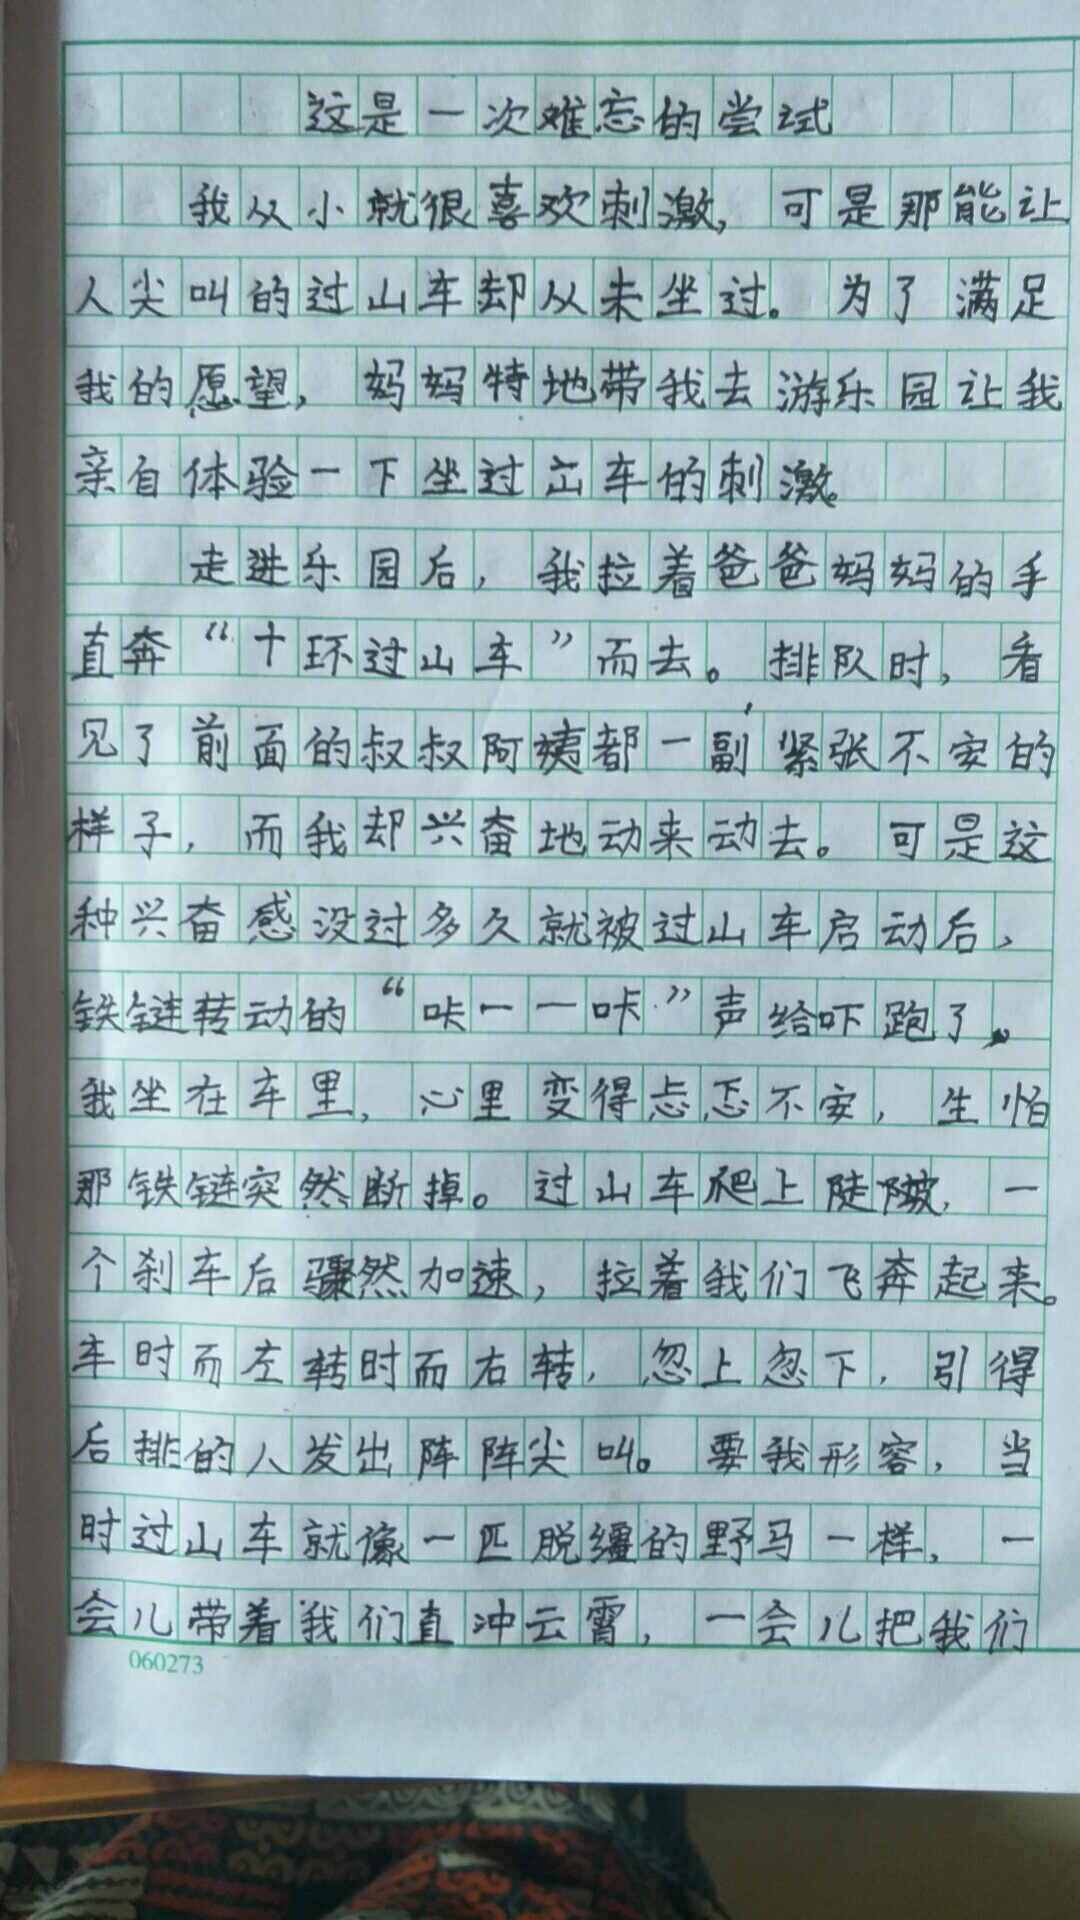 这是一次难忘的尝试
我从小就很喜欢刺激，可是那能让
人尖叫的过山车却从未坐过。为了满足
我的愿望，妈妈特地带我去游乐园让我
亲自体验一下坐过山车的刺激。
走进乐园后，我拉着爸爸妈妈的手
直奔“十环过山车”而去。排队时，看
见了前面的叔叔阿姨都一副紧张不安的
样子，而我却兴奋地动来动去。可是这
种兴奋感没过多久就被过山车启动后，
铁链转动的“咔一一咔”声给吓跑了。
我坐在车里，心里变得忐忑不安，生怕
那铁链突然断掉。过山车爬上陡陂，一
个刹车后骤然加速，拉着我们飞奔起来。
车时而左转时而右转，忽上忽下，引得
后排的人发出阵阵尖叫。要我形容，当
时过山车就像一匹脱缰的野马一样，一
会儿带着我们直冲云霄，一会儿把我们
060273